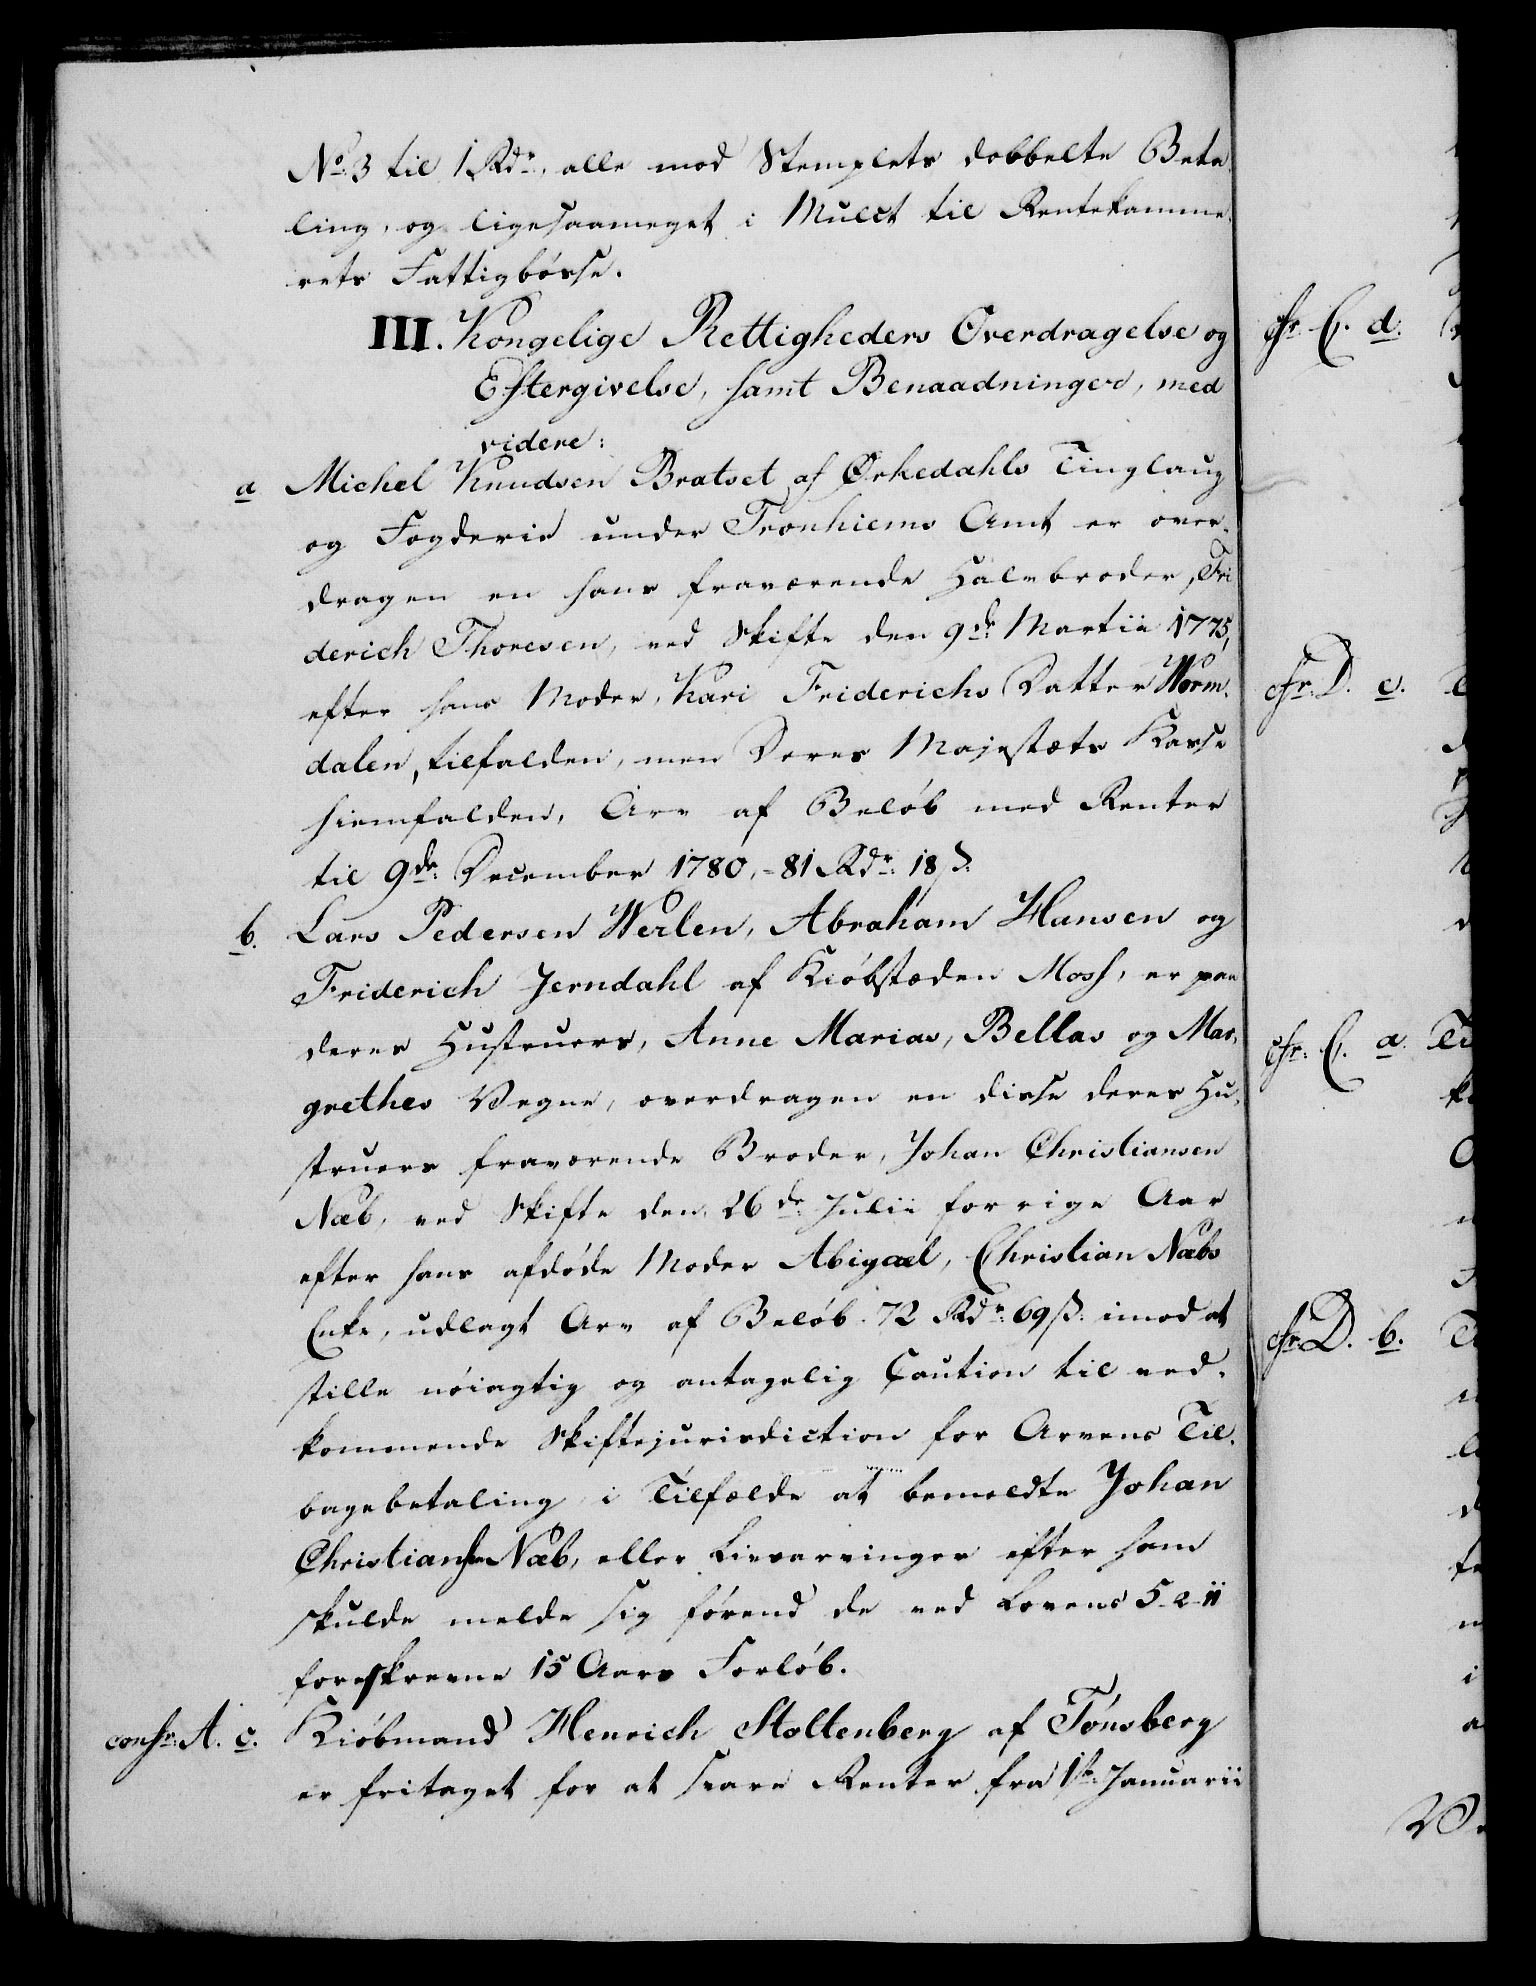 No. 3 til 1 Rdr., alle mod Stemplets dobbelte Beta-
ling, og ligesaameget i Mulct til Rentekamme-
rets Fattigbösse.
III. Kongelige Rettigheders Overdragelse og
Eftergivelse, samt Benaadninger, med
videre:
a Michel Knudsen Bratset af Ørkedahls Tinglaug
og Fogderie under Tronhiems Amt er over-
dragen en hans fraværende Halvbroder, Fri
derich Thoresen, ved Skifte den 9de Martii 1775,
efter hans Moder, Kari Friderichs Datter Worm-
dalen, tilfalden, men Deres Majestæts Kasse
hiemfalden, Arv af Belöb med Renter
til 9de December 1780, - 81 Rdr. 18 ß.
b. Lars Pedersen Werlen, Abraham Hansen og
Friderich Jerndahl af Kiöbstæden Moss, er paa
deres Hustruers, Anne Marias, Bellas og Mar-
grethes Vegne, overdragen en disse deres Hu-
struers fraværende Broder, Johan Christiansen
Næb, ved Skifte den 26de Julii forrige Aar
efter hans afdöde Moder Abigæl, Christian Næbs
Enke, udlagt Arv af Belöb 72 Rdr. 69 ß. imod at
stille nöiagtig og antagelig Caution til ved-
kommende Skiftejurisdiction for Arvens Til-
bagebetaling i Tilfælde at bemeldte Johan
Christiansen Næb, eller Livsarvinger efter ham
skulde melde sig förend de ved Lovens 5-2-11
foreskrevne 15 Aars Forlöb.
confr. A. c. Kiöbmand Henrich Stoltenberg af Tönsberg
er fritaget for at svare Renter fra 1ste Januarii
cfr. C. d.
cfr. D. c.
cfr. C. a.
cfr. D. b.